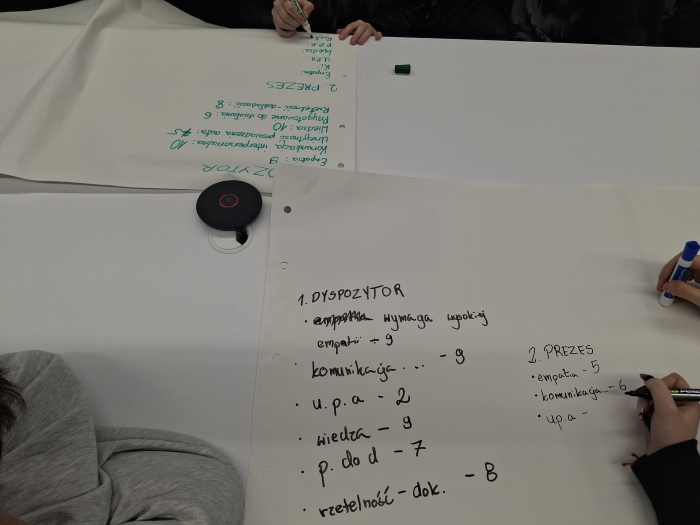 1. DYSPOZYTOR
· wymaga wysokiej
empatii - 9
· komunikacja... - 9
· u.p.a - 2
· wiedza - 9
· p. do d - 7
· rzetelność - dok. - 8
2. PREZES
· empatia - 5
· komunikacja... - 6
· u.p.a -
ZYTOR
Empatia : 9
Komunikacja interpersonalna : 10
Umiejętność prowadzenia auta : 7.5
Wiedza : 10
Przygotowanie do działania : 6
Rzetelność - dokładność : 8
2. PREZES
Empatia:
K.i:
U.P.A:
Wiedza:
P.D.D: